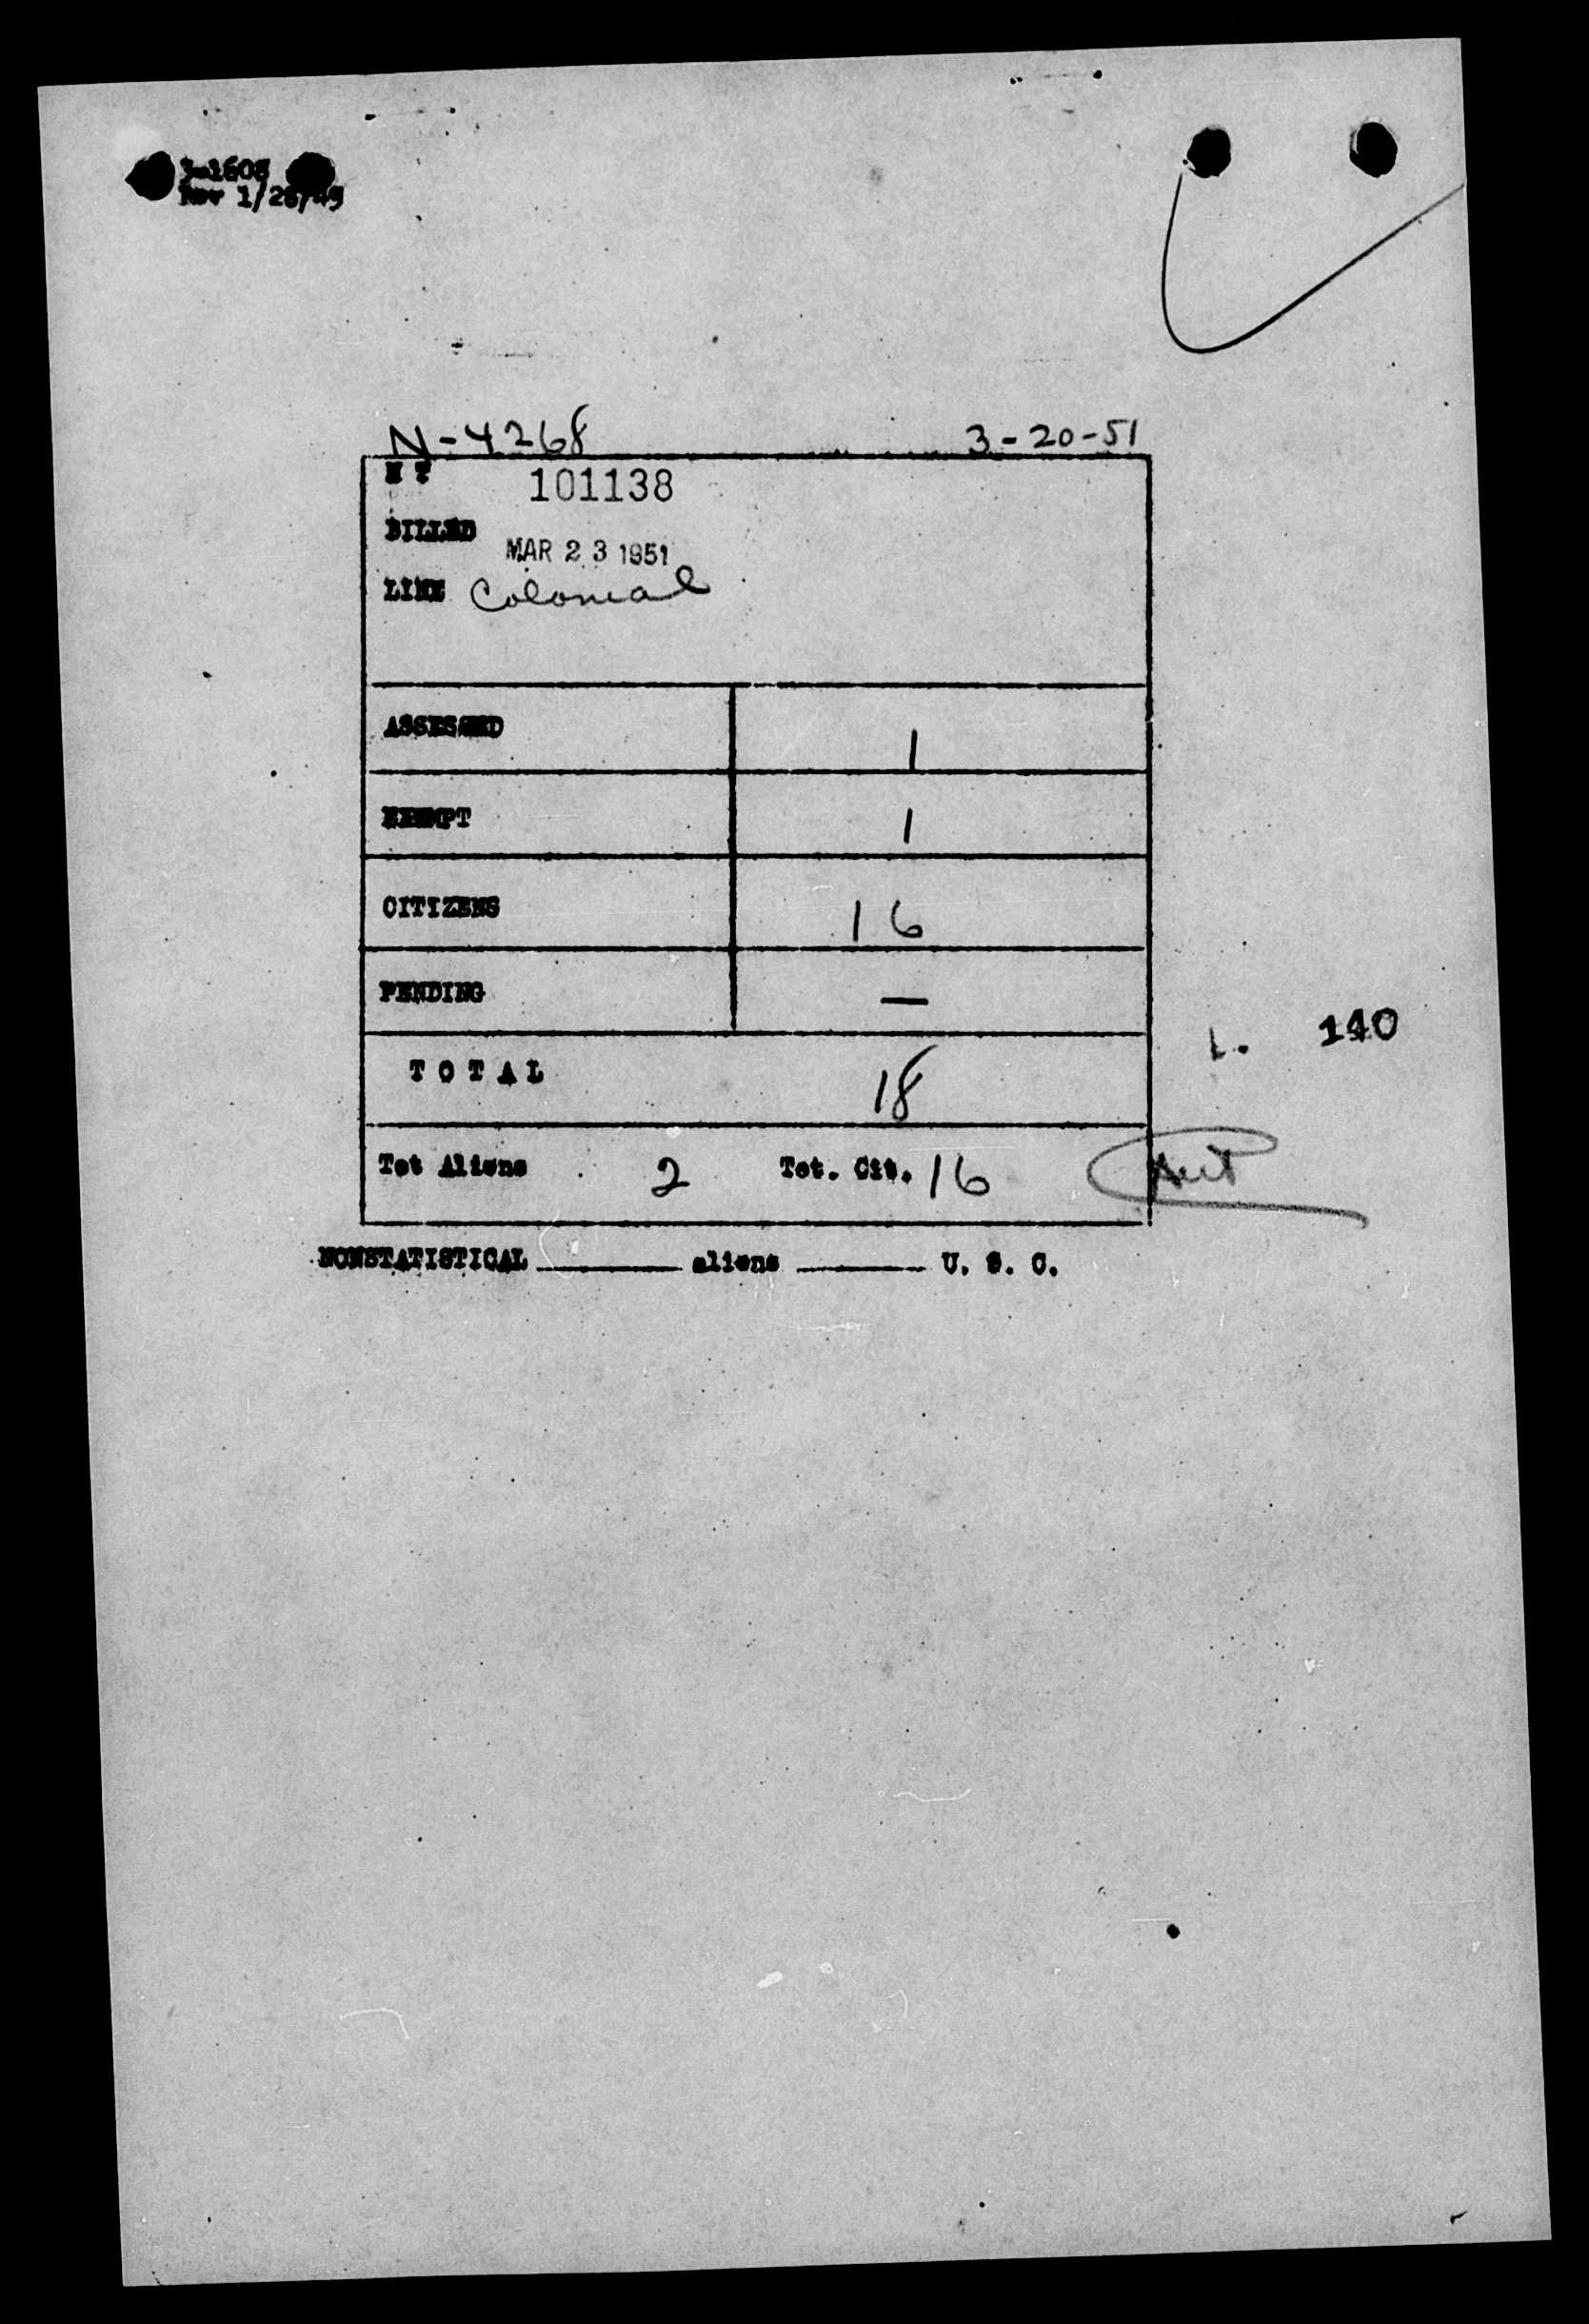 3-1608
Rev 1/28/49
N-4268 3-20-51
H T 101138
BILLED MAR 23 1951
LINE Colonial
ASSESSED 1
EXEMPT 1
CITIZENS 16
PENDING —
TOTAL 18
140
Tot Aliens 2 Tot. Cit. 16
NONSTATISTICAL ______ aliens ______ U. S. C.